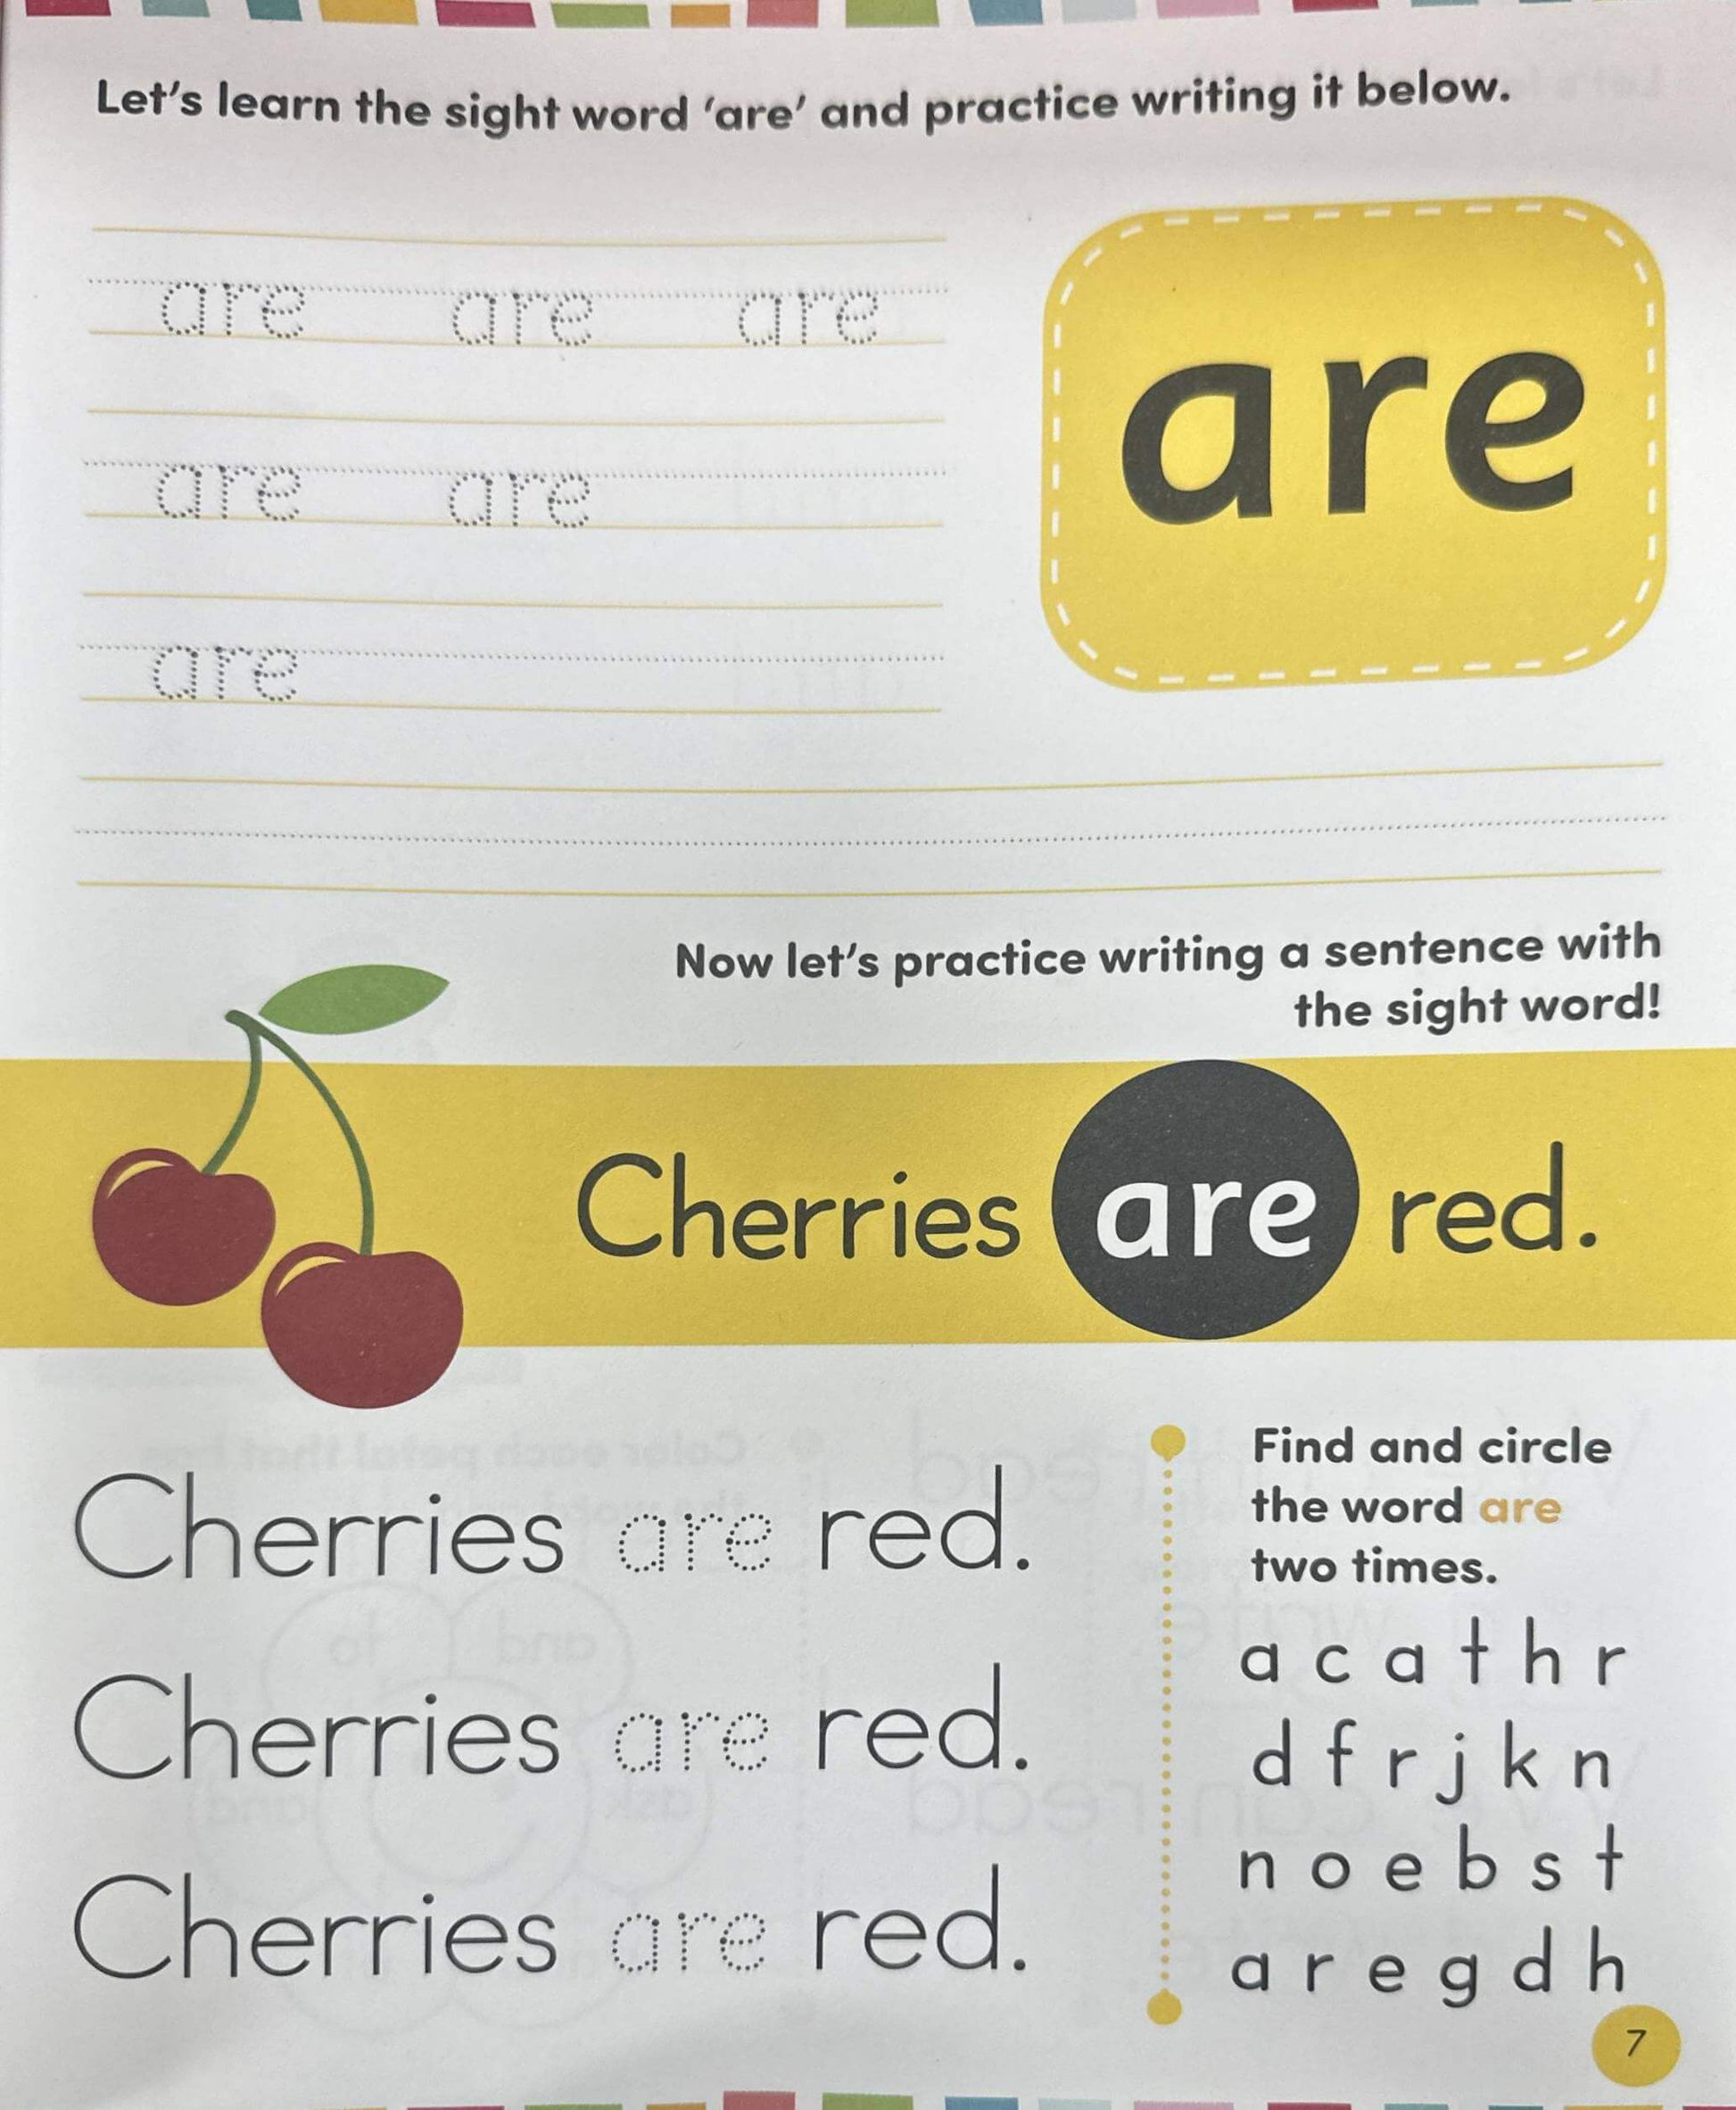 Let's learn the sight word 'are' and practice writing it below.
are are are
are
are are
are
Now let's practice writing a sentence with
the sight word!
Cherries are red.
Cherries are red.
Cherries are red.
Cherries are red.
Find and circle
the word are
two times.
a c a t h r
d f r j k n
n o e b s t
a r e g d h
7